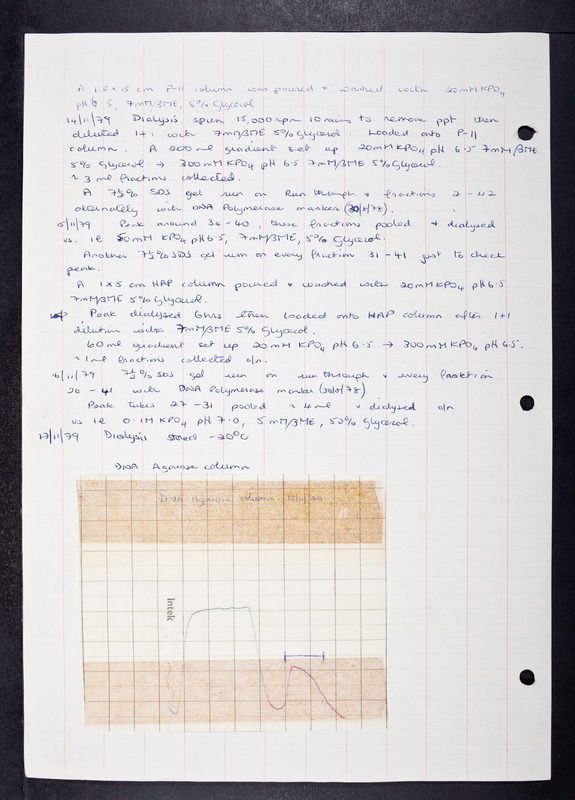 A 1.5 x 15 cm P-11 column was poured & washed with 20mM KPO4
pH 6.5, 7mM βME, 5% Glycerol
14/11/79 Dialysis spun 15,000rpm 10 mins to remove ppt then
diluted 1+1 with 7mM βME 5% Glycerol. Loaded onto P-11
column. A 200 ml gradient set up 20mM KPO4 pH 6.5 7mM βME
5% Glycerol → 300mM KPO4 pH 6.5 7mM βME 5% Glycerol.
~ 3 ml fractions collected.
A 7½% SDS gel run on Run through & fractions 2-42
alternately with DNA Polymerase marker (30/8/78).
15/11/79 Peak around 34-40, these fractions pooled & dialysed
vs. 1l 50mM KPO4 pH 6.5, 7mM βME, 5% Glycerol.
Another 7½% SDS gel run on every fraction 31-41 just to check
peak.
A 1x5 cm HAP column poured & washed with 20mM KPO4 pH 6.5
7mM βME 5% Glycerol.
Peak dialysed 6hrs then loaded onto HAP column after 1+1
dilution with 7mM βME 5% Glycerol.
60 ml gradient set up 20mM KPO4 pH 6.5 → 300mM KPO4 pH 6.5.
~ 1 ml fractions collected o/n.
16/11/79 7½% SDS gel run on run through & every fraction
20-41 with DNA Polymerase marker (30/8/78)
Peak tubes 27-31 pooled ~ 4ml & dialysed o/n
vs 1l 0.1M KPO4 pH 7.0, 5mM βME, 50% Glycerol.
17/11/79 Dialysis stored -20°C
DNA Agarose column
DNA Agarose column /11/79
Intek